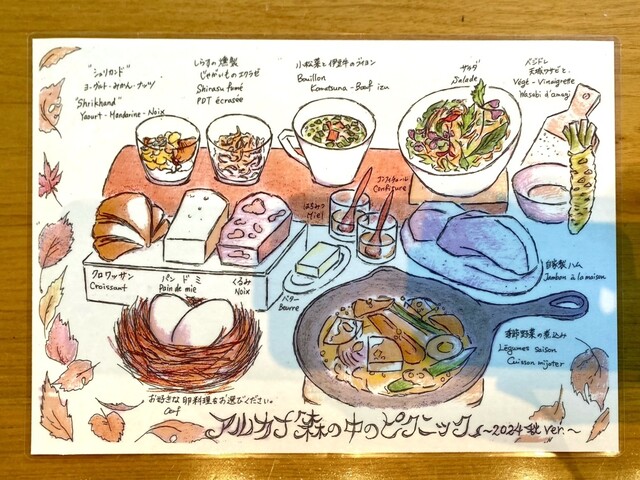 "シュリカンド"
ヨーグルト・みかん・ナッツ
"Shrikhand"
Yaourt - Mandarine - Noix
しらすの燻製
じゃがいものエクラゼ
Shirasu fumé
PDT écrasée
小松菜と伊豆牛のブイヨン
Bouillon
Komatsuna - Bœuf izu
サラダ
Salade
ベジドレ
天城ワサビと
Végt - Vinaigrette
Wasabi d'amagi
コンフィチュール
Confiture
はちみつ
Miel
クロワッサン
Croissant
パン ド ミ
Pain de mie
くるみ
Noix
バター
Beurre
自家製ハム
Jambon à la maison
季節野菜の煮込み
Légumes saison
Cuisson mijoter
お好きな卵料理をお選びください。
Œuf
アルカナ森の中のピクニック ～2024 秋 ver.～